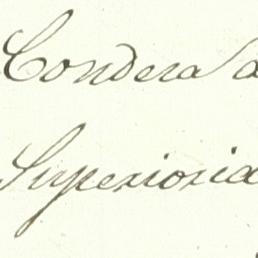 Condera a
Superiorid